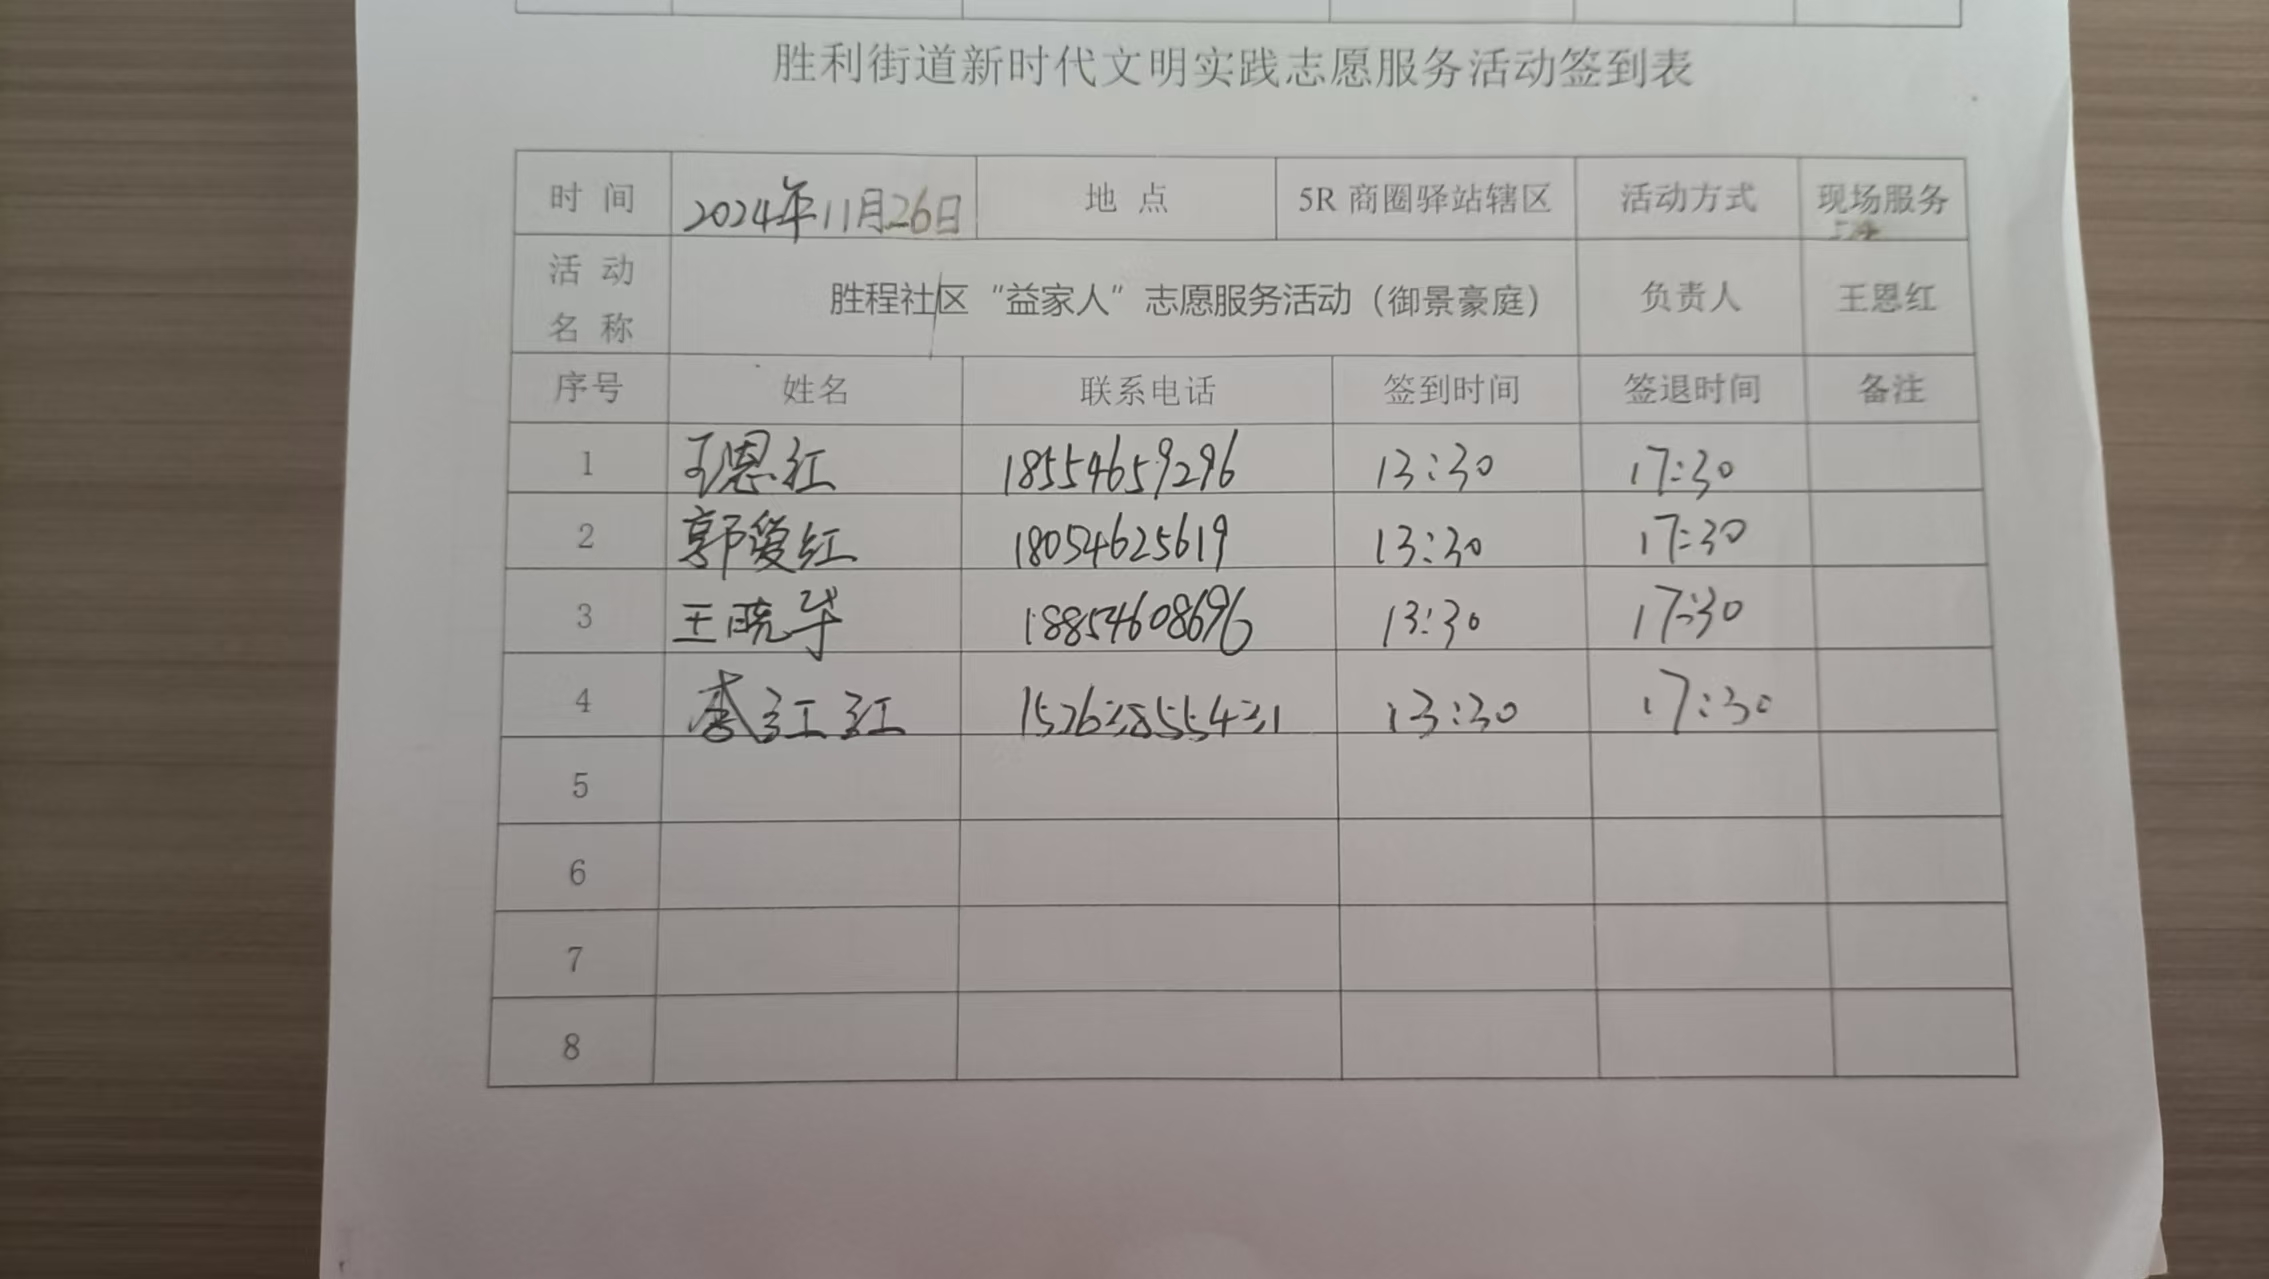 胜利街道新时代文明实践志愿服务活动签到表
时 间 2024年11月26日 地 点 5R 商圈驿站辖区 活动方式 现场服务
活 动 名 称 胜程社区“益家人”志愿服务活动（御景豪庭） 负责人 王恩红
序号 姓名 联系电话 签到时间 签退时间 备注
1 王恩红 18554659296 13:30 17:30
2 郭爱红 18054625619 13:30 17:30
3 王晓华 18854608696 13:30 17:30
4 李红红 15263855431 13:30 17:30
5
6
7
8